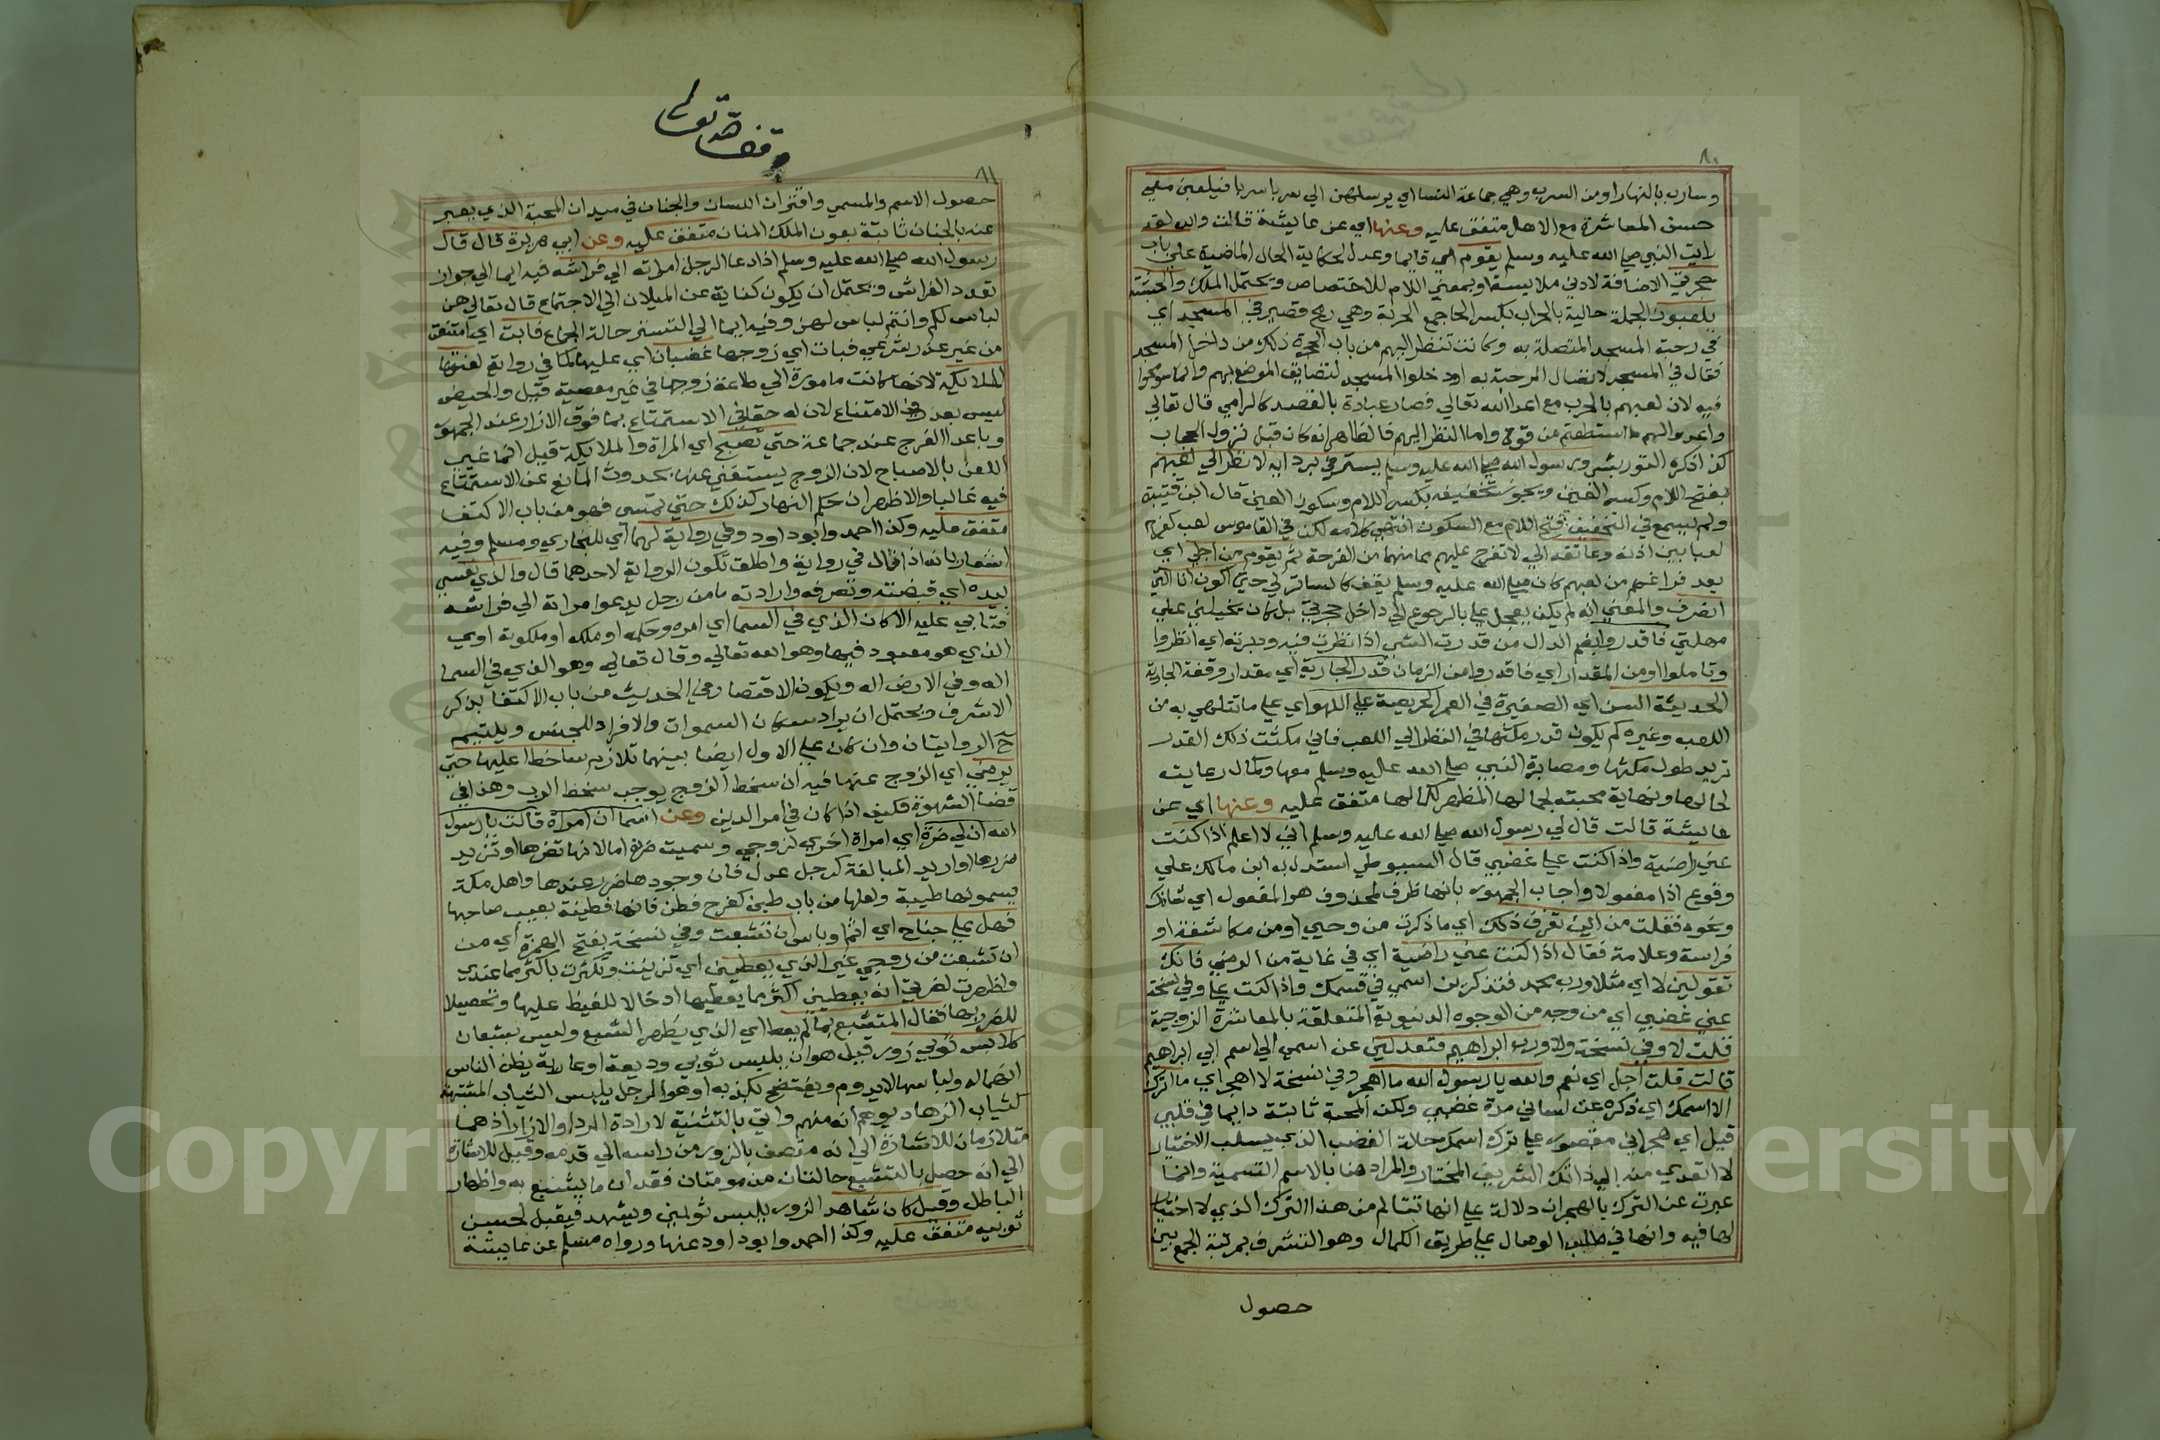 ٨٠
وسارب بالنهار او من السرب وهي جماعة النسا اي يرسلهن الي سربا سربا فيلعبن معي
حسن المعاشرة مع الاهل متفق عليه وعنها اي عن عايشة قالت والله لقد
رايت النبي صلي الله عليه وسلم يقوم اي قايما وعدل لحكاية الحال الماضية علي باب
حجرتي الاضافة لادني ملابسة او بمعني اللام للاختصاص ويحتمل الملك والحبشة
يلعبون الجملة حالية بالحراب بكسر الحا جمع الحربة وهي رمح قصير في المسجد اي
في رحبة المسجد المتصلة به وكانت تنظر اليهم من باب الحجرة وذلك من داخل المسجد
فقال في المسجد لاتصال الرحبة به او دخلوا المسجد لتضايق الموضع بهم وانما سومحوا
فيه لان لعبهم بالحرب مع اعدا الله تعالي فصار عبادة بالقصد كالرمي قال تعالي
واعدوا لهم ما استطعتم من قوة واما النظر اليهم فالظاهر انه كان قبل نزول الحجاب
كذا ذكره التوربشتي ورسول الله صلي الله عليه وسلم يسترني بردايه لانظر الي لعبهم
بفتح اللام وكسر العين ويجوز تخفيفه بكسر اللام وسكون العين قال ابن قتيبة
ولم يسمع في التخفيف فتح اللام مع السكون انتهي كلامه لكن في القاموس لعب كفرح
لعبا بين اذنه وعاتقه اي لاتفرج عليهم مما منهما من الفرجة ثم يقوم من اجلي اي
بعد فراغهم من لعبهم كان صلي الله عليه وسلم يقف كالساتر لي حتي اكون انا التي
انصرف والمعني انه لم يكن يعجل علي بالرجوع الي داخل حجرتي بل كان يخيليني علي
مهلتي فاقدروا بضم الدال من قدرت الشي اذا نظرت فيه ودبرته اي انظروا
وتاملوا او من المقدار اي فاقدروا من الزمان قدر الجارية اي مقدار وقفة الجارية
الحديثة السن اي الصغيرة في العمر الحريصة علي اللهو اي علي ما تتلهي به من
اللعب وغيره كم يكون قدر مكثها في النظر الي اللعب فاني مكثت ذلك القدر
تريد طول مكثها ومصابرة النبي صلي الله عليه وسلم معها وكمال رعايته
لحالها ونهاية محبته لجمالها المظهر لكمالها متفق عليه وعنها اي عن
عايشة قالت قال لي رسول الله صلي الله عليه وسلم اني لاعلم اذا كنت
عني راضية واذا كنت علي غضبي قال السيوطي استدل به ابن مالك علي
وقوع اذا مفعولا واجاب الجمهور بانها ظرف لمحذوف هو المفعول اي شانك
ونحوه فقلت من اين تعرف ذلك اي ما ذكرت من وحي او من مكاشفة او
فراسة وعلامة فقال اذا كنت عني راضية اي في غاية من الرضي فانك
تقولين لا اي مثلا ورب محمد فتذكرين اسمي في قسمك واذا كنت علي وفي نسخة
عني غضبي اي من وجه من الوجوه الدنيوية المتعلقة بالمعاشرة الزوجية
قلت لا وفي نسخة ولا ورب ابراهيم فتعدلين عن اسمي الي اسم ابي ابراهيم
قالت قلت اجل اي نعم والله يا رسول الله ما اهجر وفي نسخة لا اهجر اي ما اترك
الا اسمك اي ذكره عن لساني مدة غضبي ولكن المحبة ثابتة دايما في قلبي
قيل اي هجراني مقصور علي ترك اسمك حالة الغضب الذي يسلب الاختيار
لا اتعدي منه الي ذاتك الشريف المختار والمراد هنا بالاسم التسمية وانما
عبرت عن الترك بالهجران دلالة علي انها تتالم من هذا الترك الذي لا اختيار
لها فيه وانها في طلب الوصال علي طريق الكمال وهو التشرف بمرتبة الجمع بين
حصول
وقف لله تعالي
٨١
حصول الاسم والمسمي واقتران اللسان والجنان في ميدان المحبة الذي يعبر
عنه بالجنان ثابتة بعون الملك المنان متفق عليه وعن ابي هريرة قال قال
رسول الله صلي الله عليه وسلم اذا دعا الرجل امراته الي فراشه فيه ايما الي جواز
تعدد الفراش ويحتمل ان يكون كناية عن الميلان الي الاجتماع قال تعالي هن
لباس لكم وانتم لباس لهن وفيه ايما الي التستر حالة الجماع فابت اي امتنعت
من غير عذر شرعي فبات اي زوجها غضبان اي عليها كما في رواية لعنتها
الملايكة لانها كانت مامورة الي طاعة زوجها في غير معصية قيل والحيض
ليس بعذر في الامتناع لان له حقا في الاستمتاع بما فوق الازار عند الجمهور
وبما عدا الفرج عند جماعة حتي تصبح اي المراة والملايكة قيل انما غيي
اللعن بالاصباح لان الزوج يستغني عنها بحدوث المانع عن الاستمتاع
فيه غالبا والاظهر ان حكم النهار كذلك حتي تمسي فهو من باب الاكتفا
متفق عليه وكذا احمد وابو داود وفي رواية لهما اي للبخاري ومسلم وفيه
اشعار بانه اذا قال في رواية واطلق تكون الرواية لاحدهما قال والذي نفسي
بيده اي قبضته وتصرفه وارادته ما من رجل يدعو امراته الي فراشه
فتابي عليه الا كان الذي في السما اي امره وحكمه او ملكه او ملكوته او بي
الذي هو معبود فيها وهو الله تعالي وقال تعالي وهو الذي في السما
اله وفي الارض اله ويكون الاقتصار في الحديث من باب الاكتفا بذكر
الاشرف ويحتمل ان يراد سكان السموات والافراد للجنس ويلتيم
ح الروايتان وان كان علي الاول ايضا بينهما تلازم ساخطا عليها حتي
يرضي اي الزوج عنها فيه ان سخط الزوج يوجب سخط الرب وهذا في
قضا الشهوة فكيف اذا كان في امر الدين وعن اسما ان امراة قالت يا رسول
الله ان لي ضرة اي امراة اخري لزوجي وسميت ضرة اما لانها تضرها او تزيد
ضررها او اريد المبالغة كرجل عدل فان وجودها ضرر عندها واهل مكة
يسمونها طيبة ولعلها من باب طبن كفرح فطن فانها فطينة بعيب صاحبها
فهل علي جناح اي اثم او باس ان تشبعت وفي نسخة بفتح الهمزة اي من
ان تشبعت من زوجي غير الذي يعطيني اي تزينت وتكثرت باكثر مما عندي
واظهرت لضرتي انه يعطيني اكثر مما يعطيها ادخالا للغيظ عليها وتحصيلا
للضرر بها فقال المتشبع بما لم يعط اي الذي يظهر الشبع وليس بشبعان
كلابس ثوبي زور قيل هو ان يلبس ثوبي وديعة او عارية يظن الناس
انهما له ولباسهما لا يدوم ويفتضح بكذبه او هو الرجل يلبس الثياب المشبهة
لثياب الزهاد يوهم انه منهم واتي بالتثنية لارادة الردا والازار اذ هما
متلازمان للاشارة الي انه متصف بالزور من راسه الي قدمه وقيل للاشارة
الي انه حصل بالتشبع حالتان مذمومتان فقدان ما يتشبع به واظهار
الباطل وقيل كان شاهد الزور يلبس ثوبين ويشهد فيقبل لحسن
ثوبيه متفق عليه وكذا احمد وابو داود عنها ورواه مسلم عن عايشة
Copyright © King Saud University